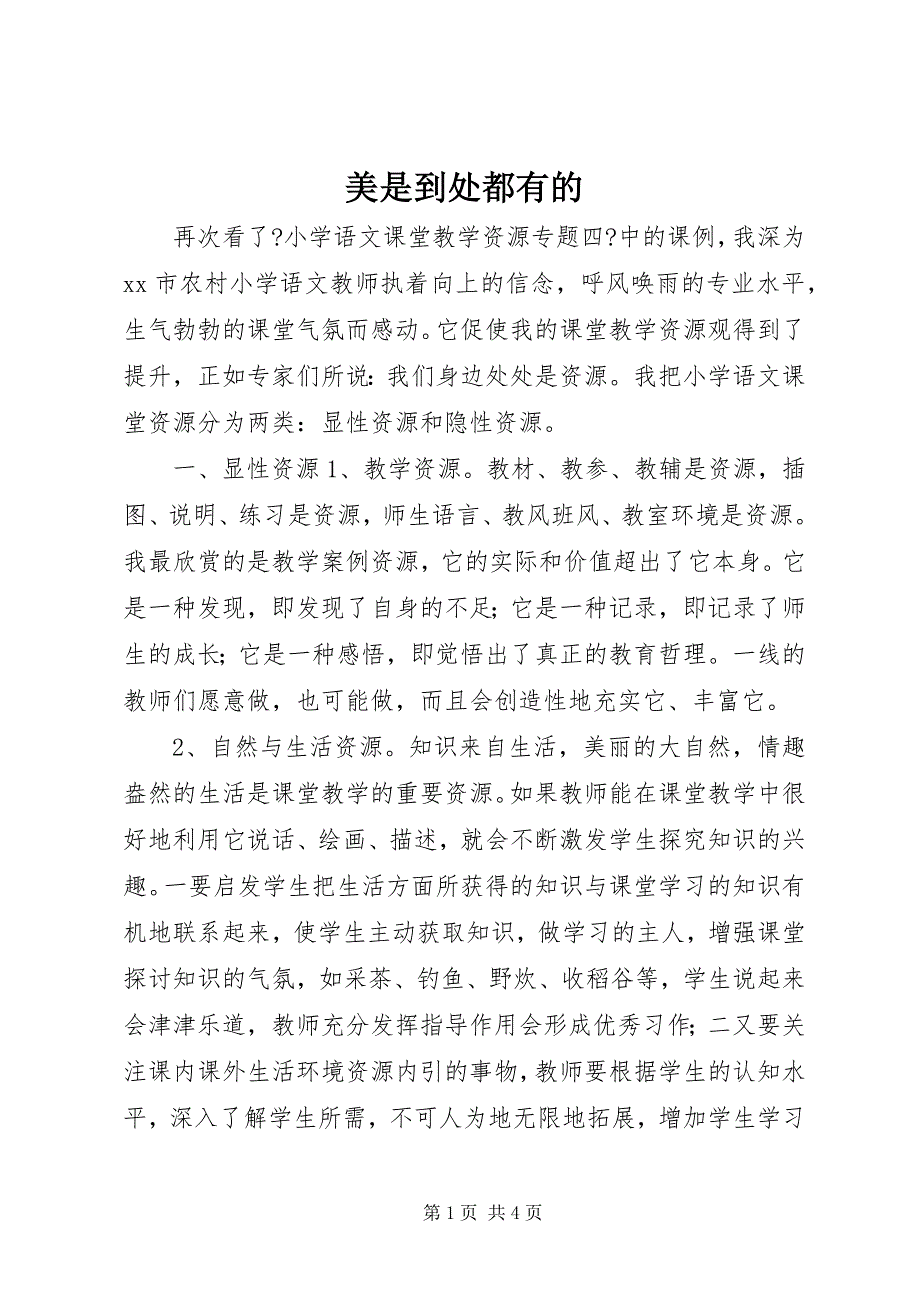 美是到处都有的
再次看了?小学语文课堂教学资源专题四?中的课例，我深为
xx 市农村小学语文教师执着向上的信念，呼风唤雨的专业水平，
生气勃勃的课堂气氛而感动。它促使我的课堂教学资源观得到了
提升，正如专家们所说：我们身边处处是资源。我把小学语文课
堂资源分为两类：显性资源和隐性资源。
一、显性资源 1、教学资源。教材、教参、教辅是资源，插
图、说明、练习是资源，师生语言、教风班风、教室环境是资源。
我最欣赏的是教学案例资源，它的实际和价值超出了它本身。它
是一种发现，即发现了自身的不足；它是一种记录，即记录了师
生的成长；它是一种感悟，即觉悟出了真正的教育哲理。一线的
教师们愿意做，也可能做，而且会创造性地充实它、丰富它。
2、自然与生活资源。知识来自生活，美丽的大自然，情趣
盎然的生活是课堂教学的重要资源。如果教师能在课堂教学中很
好地利用它说话、绘画、描述，就会不断激发学生探究知识的兴
趣。一要启发学生把生活方面所获得的知识与课堂学习的知识有
机地联系起来，使学生主动获取知识，做学习的主人，增强课堂
探讨知识的气氛，如采茶、钓鱼、野炊、收稻谷等，学生说起来
会津津乐道，教师充分发挥指导作用会形成优秀习作；二又要关
注课内课外生活环境资源内引的事物，教师要根据学生的认知水
平，深入了解学生所需，不可人为地无限地拓展，增加学生学习
第 1 页 共 4 页